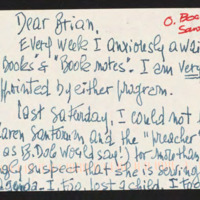 Dear Brian,
O. Bo
San
Every week I anxiously awai
Books & "Book notes". I am very
ppointed by either program.
Last Saturday, I could not
aren Santorum and the "preacher"
as B. Dole would say!) for more than
gly suspect that she is serving
genda. I, too, lost a child. I, too